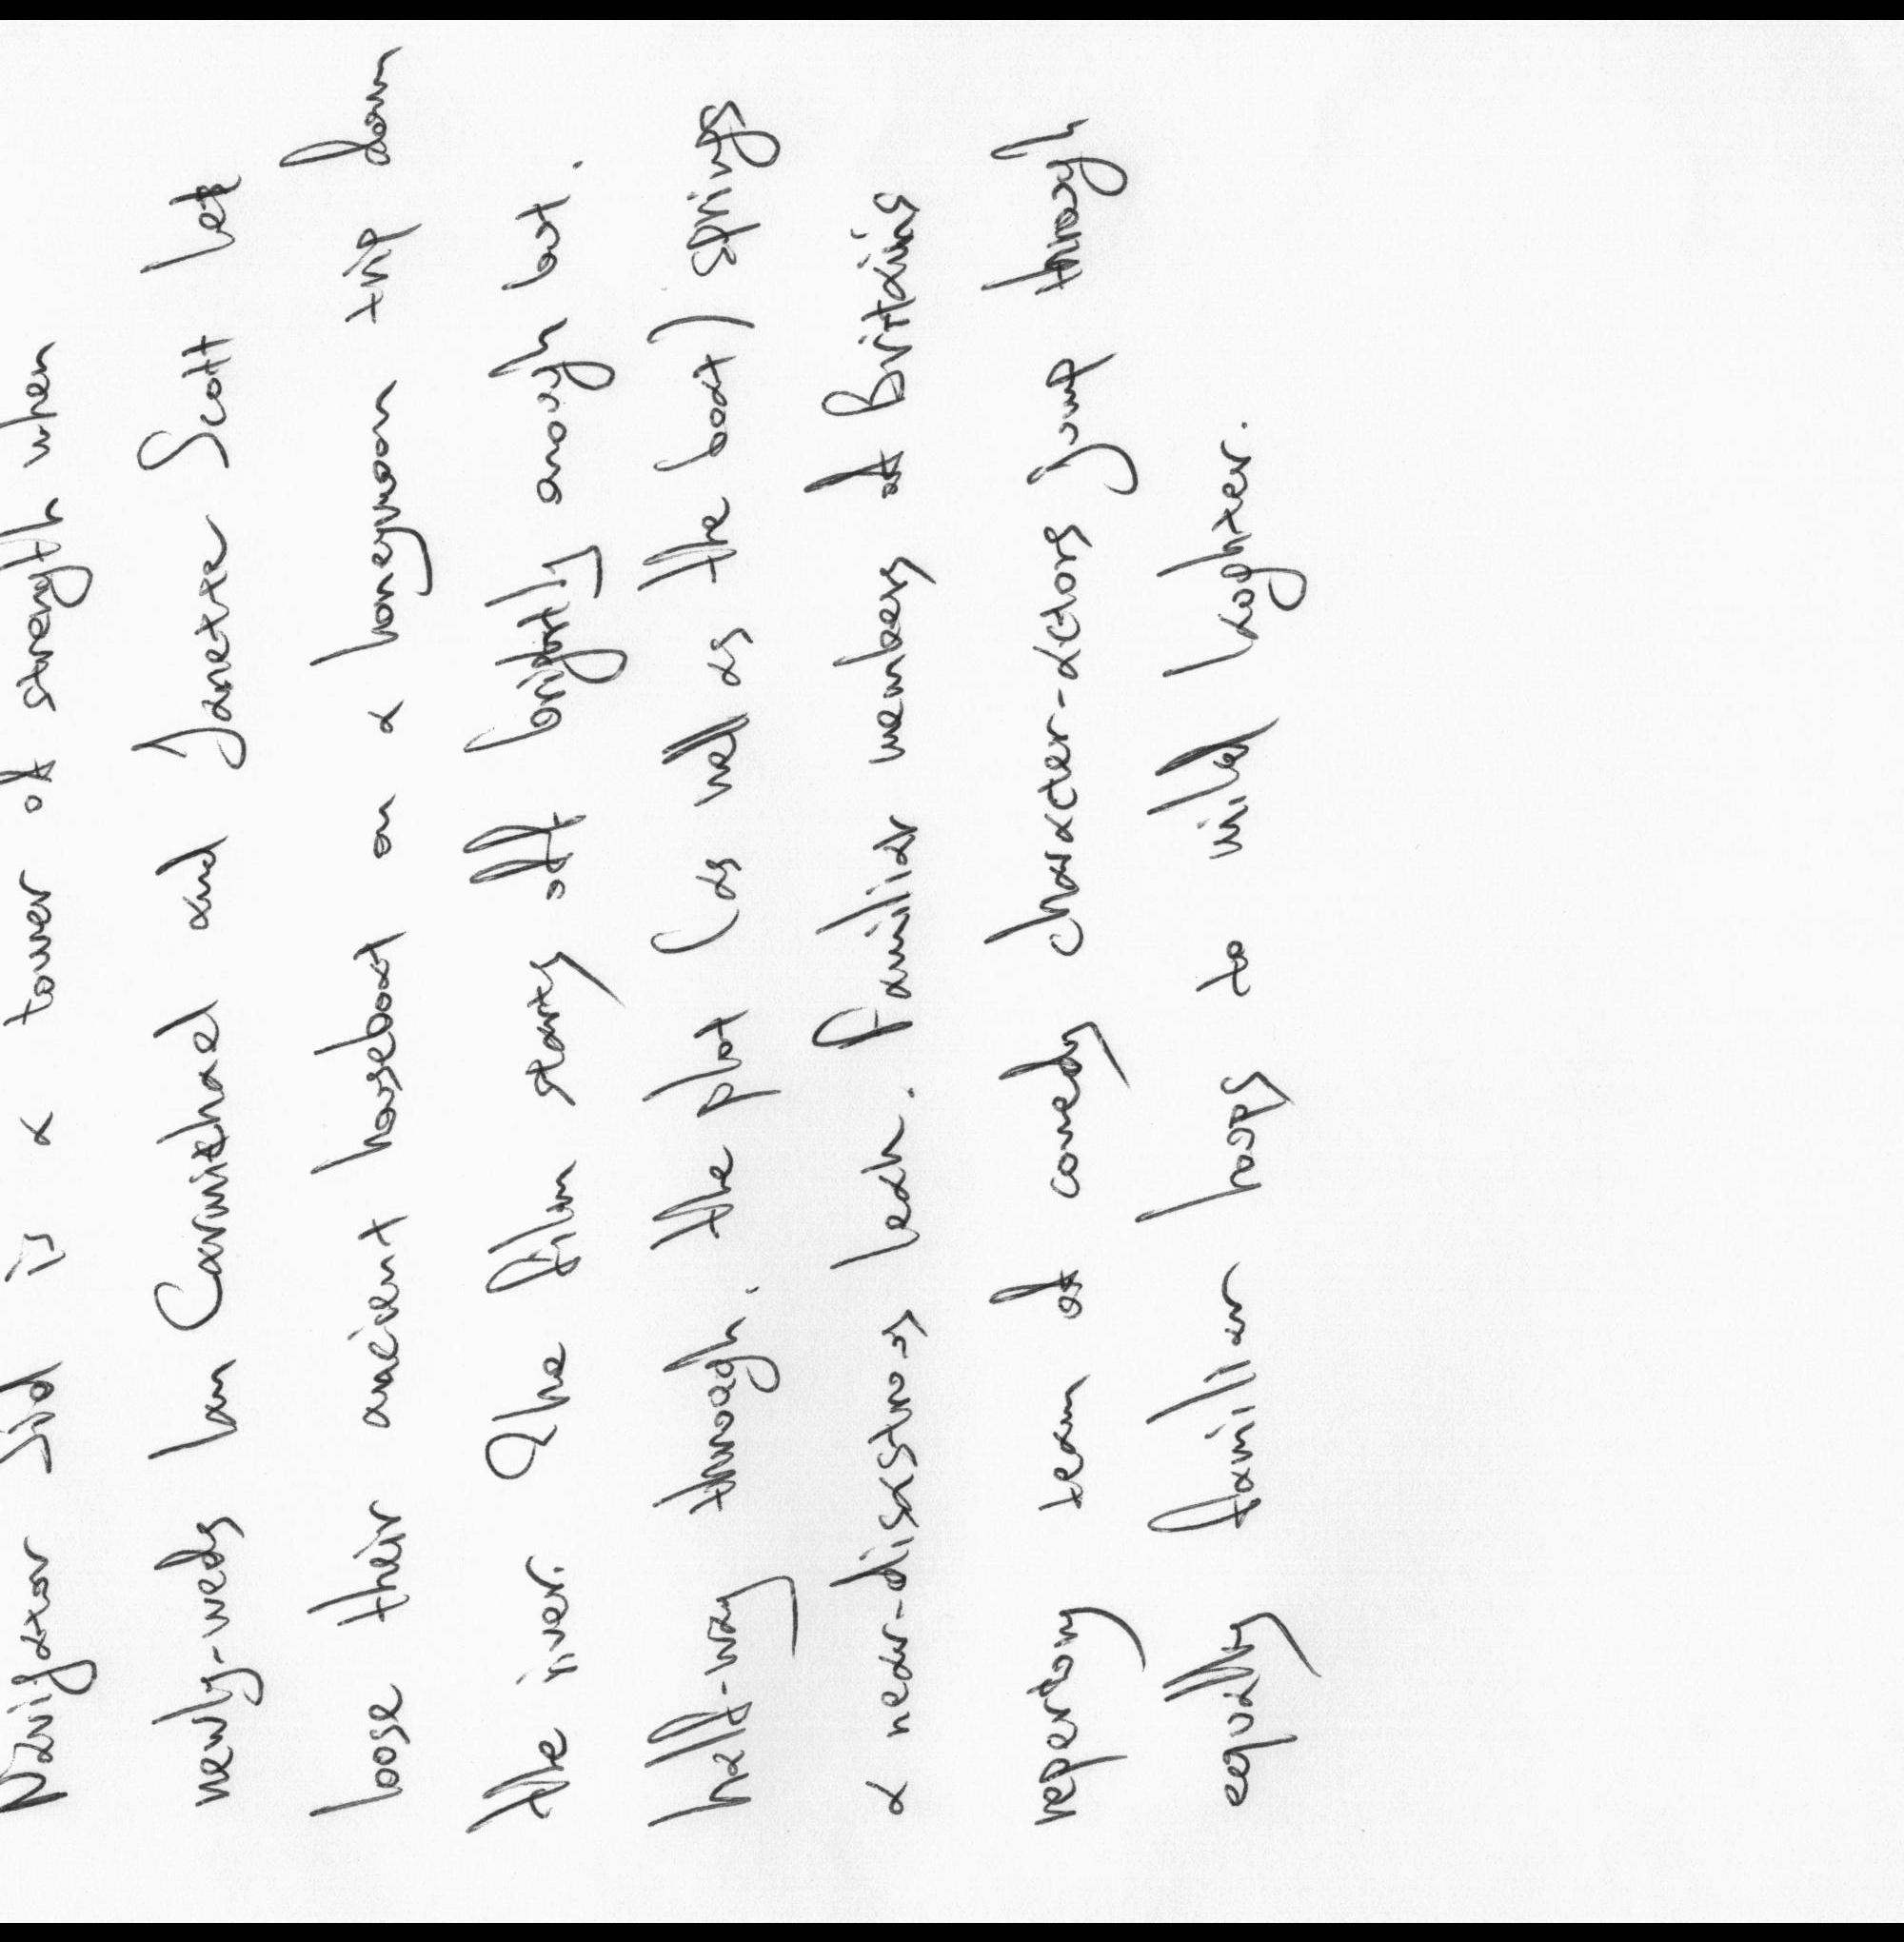 Navigator Sid is a tower of strength when
newly-weds Ian Carmichael and Janette Scott let
loose their ancient houseboat on a honeymoon trip down
the river. The film starts off brightly enough but.
half-way through. the plot (as well as the boat) springs
a near-disastrous leak. Familiar members of Britains
repertory team of comedy character-actors jump through
equally familiar hoops to mild laughter.